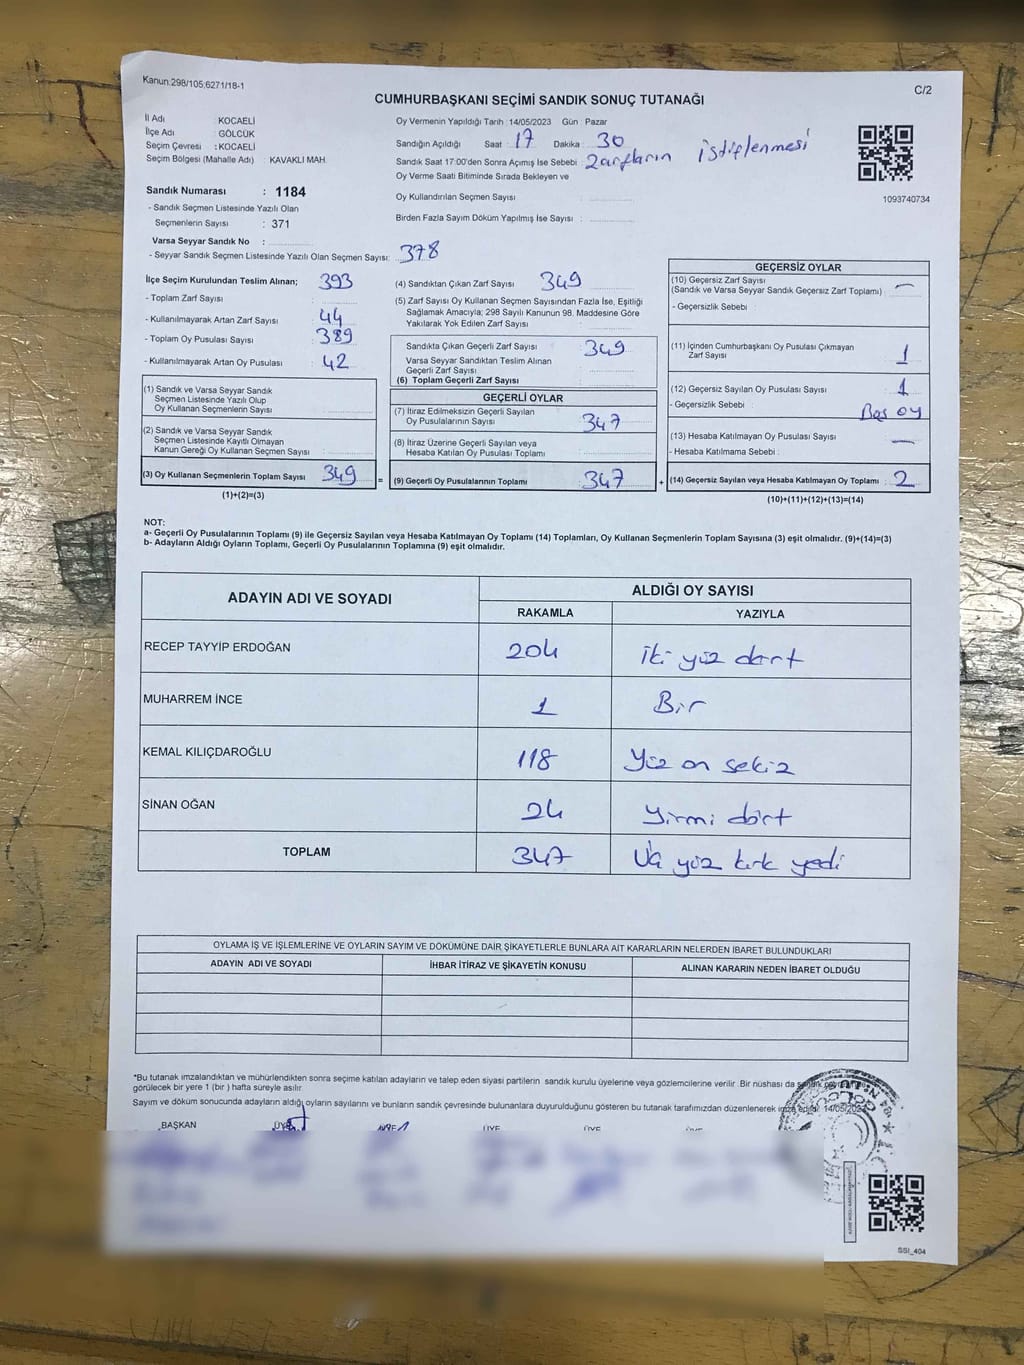 Kanun.298/105;6271/18-1
C/2
CUMHURBAŞKANI SEÇİMİ SANDIK SONUÇ TUTANAĞI
İl Adı KOCAELİ
İlçe Adı : GÖLCÜK
Seçim Çevresi : KOCAELİ
Seçim Bölgesi (Mahalle Adı) KAVAKLI MAH.
Sandık Numarası : 1184
- Sandık Seçmen Listesinde Yazılı Olan
Seçmenlerin Sayısı : 371
Varsa Seyyar Sandık No :
- Seyyar Sandık Seçmen Listesinde Yazılı Olan Seçmen Sayısı: 378
Oy Vermenin Yapıldığı Tarih : 14/05/2023 Gün : Pazar
Sandığın Açıldığı Saat : 17 Dakika : 30
Sandık Saat 17:00'den Sonra Açımış İse Sebebi : Zarfların istiflenmesi
Oy Verme Saati Bitiminde Sırada Bekleyen ve
Oy Kullandırılan Seçmen Sayısı :
Birden Fazla Sayım Döküm Yapılmış İse Sayısı :
1093740734
İlçe Seçim Kurulundan Teslim Alınan; 393
- Toplam Zarf Sayısı :
- Kullanılmayarak Artan Zarf Sayısı : 44
- Toplam Oy Pusulası Sayısı : 389
- Kullanılmayarak Artan Oy Pusulası : 42
(1) Sandık ve Varsa Seyyar Sandık
Seçmen Listesinde Yazılı Olup
Oy Kullanan Seçmenlerin Sayısı :
(2) Sandık ve Varsa Seyyar Sandık
Seçmen Listesinde Kayıtlı Olmayan
Kanun Gereği Oy Kullanan Seçmen Sayısı :
(3) Oy Kullanan Seçmenlerin Toplam Sayısı : 349 =
(1)+(2)=(3)
(4) Sandıktan Çıkan Zarf Sayısı : 349
(5) Zarf Sayısı Oy Kullanan Seçmen Sayısından Fazla İse, Eşitliği
Sağlamak Amacıyla; 298 Sayılı Kanunun 98. Maddesine Göre
Yakılarak Yok Edilen Zarf Sayısı :
Sandıkta Çıkan Geçerli Zarf Sayısı : 349
Varsa Seyyar Sandıktan Teslim Alınan
Geçerli Zarf Sayısı :
(6) Toplam Geçerli Zarf Sayısı :
GEÇERLİ OYLAR
(7) İtiraz Edilmeksizin Geçerli Sayılan
Oy Pusulalarının Sayısı : 347
(8) İtiraz Üzerine Geçerli Sayılan veya
Hesaba Katılan Oy Pusulası Toplamı :
(9) Geçerli Oy Pusulalarının Toplamı : 347 +
GEÇERSİZ OYLAR
(10) Geçersiz Zarf Sayısı
(Sandık ve Varsa Seyyar Sandık Geçersiz Zarf Toplamı) : —
- Geçersizlik Sebebi :
(11) İçinden Cumhurbaşkanı Oy Pusulası Çıkmayan
Zarf Sayısı : 1
(12) Geçersiz Sayılan Oy Pusulası Sayısı : 1
- Geçersizlik Sebebi : Boş oy
(13) Hesaba Katılmayan Oy Pusulası Sayısı : —
- Hesaba Katılmama Sebebi :
(14) Geçersiz Sayılan veya Hesaba Katılmayan Oy Toplamı : 2
(10)+(11)+(12)+(13)=(14)
NOT:
a- Geçerli Oy Pusulalarının Toplamı (9) ile Geçersiz Sayılan veya Hesaba Katılmayan Oy Toplamı (14) Toplamları, Oy Kullanan Seçmenlerin Toplam Sayısına (3) eşit olmalıdır. (9)+(14)=(3)
b- Adayların Aldığı Oyların Toplamı, Geçerli Oy Pusulalarının Toplamına (9) eşit olmalıdır.
ADAYIN ADI VE SOYADI ALDIĞI OY SAYISI
RAKAMLA YAZIYLA
RECEP TAYYİP ERDOĞAN 204 iki yüz dört
MUHARREM İNCE 1 Bir
KEMAL KILIÇDAROĞLU 118 Yüz on sekiz
SİNAN OĞAN 24 Yirmi dört
TOPLAM 347 Üç yüz kırk yedi
OYLAMA İŞ VE İŞLEMLERİNE VE OYLARIN SAYIM VE DÖKÜMÜNE DAİR ŞİKAYETLERLE BUNLARA AİT KARARLARIN NELERDEN İBARET BULUNDUKLARI
ADAYIN ADI VE SOYADI İHBAR İTİRAZ VE ŞİKAYETİN KONUSU ALINAN KARARIN NEDEN İBARET OLDUĞU
*Bu tutanak imzalandıktan ve mühürlendikten sonra seçime katılan adayların ve talep eden siyasi partilerin sandık kurulu üyelerine veya gözlemcilerine verilir. Bir nüshası da sandık
görülecek bir yere 1 (bir ) hafta süreyle asılır.
Sayım ve döküm sonucunda adayların aldığı oyların sayılarını ve bunların sandık çevresinde bulunanlara duyurulduğunu gösteren bu tutanak tarafımızdan düzenlenerek imza edildi. 14/05/2023
BAŞKAN ÜYE ÜYE ÜYE ÜYE
SSI_404